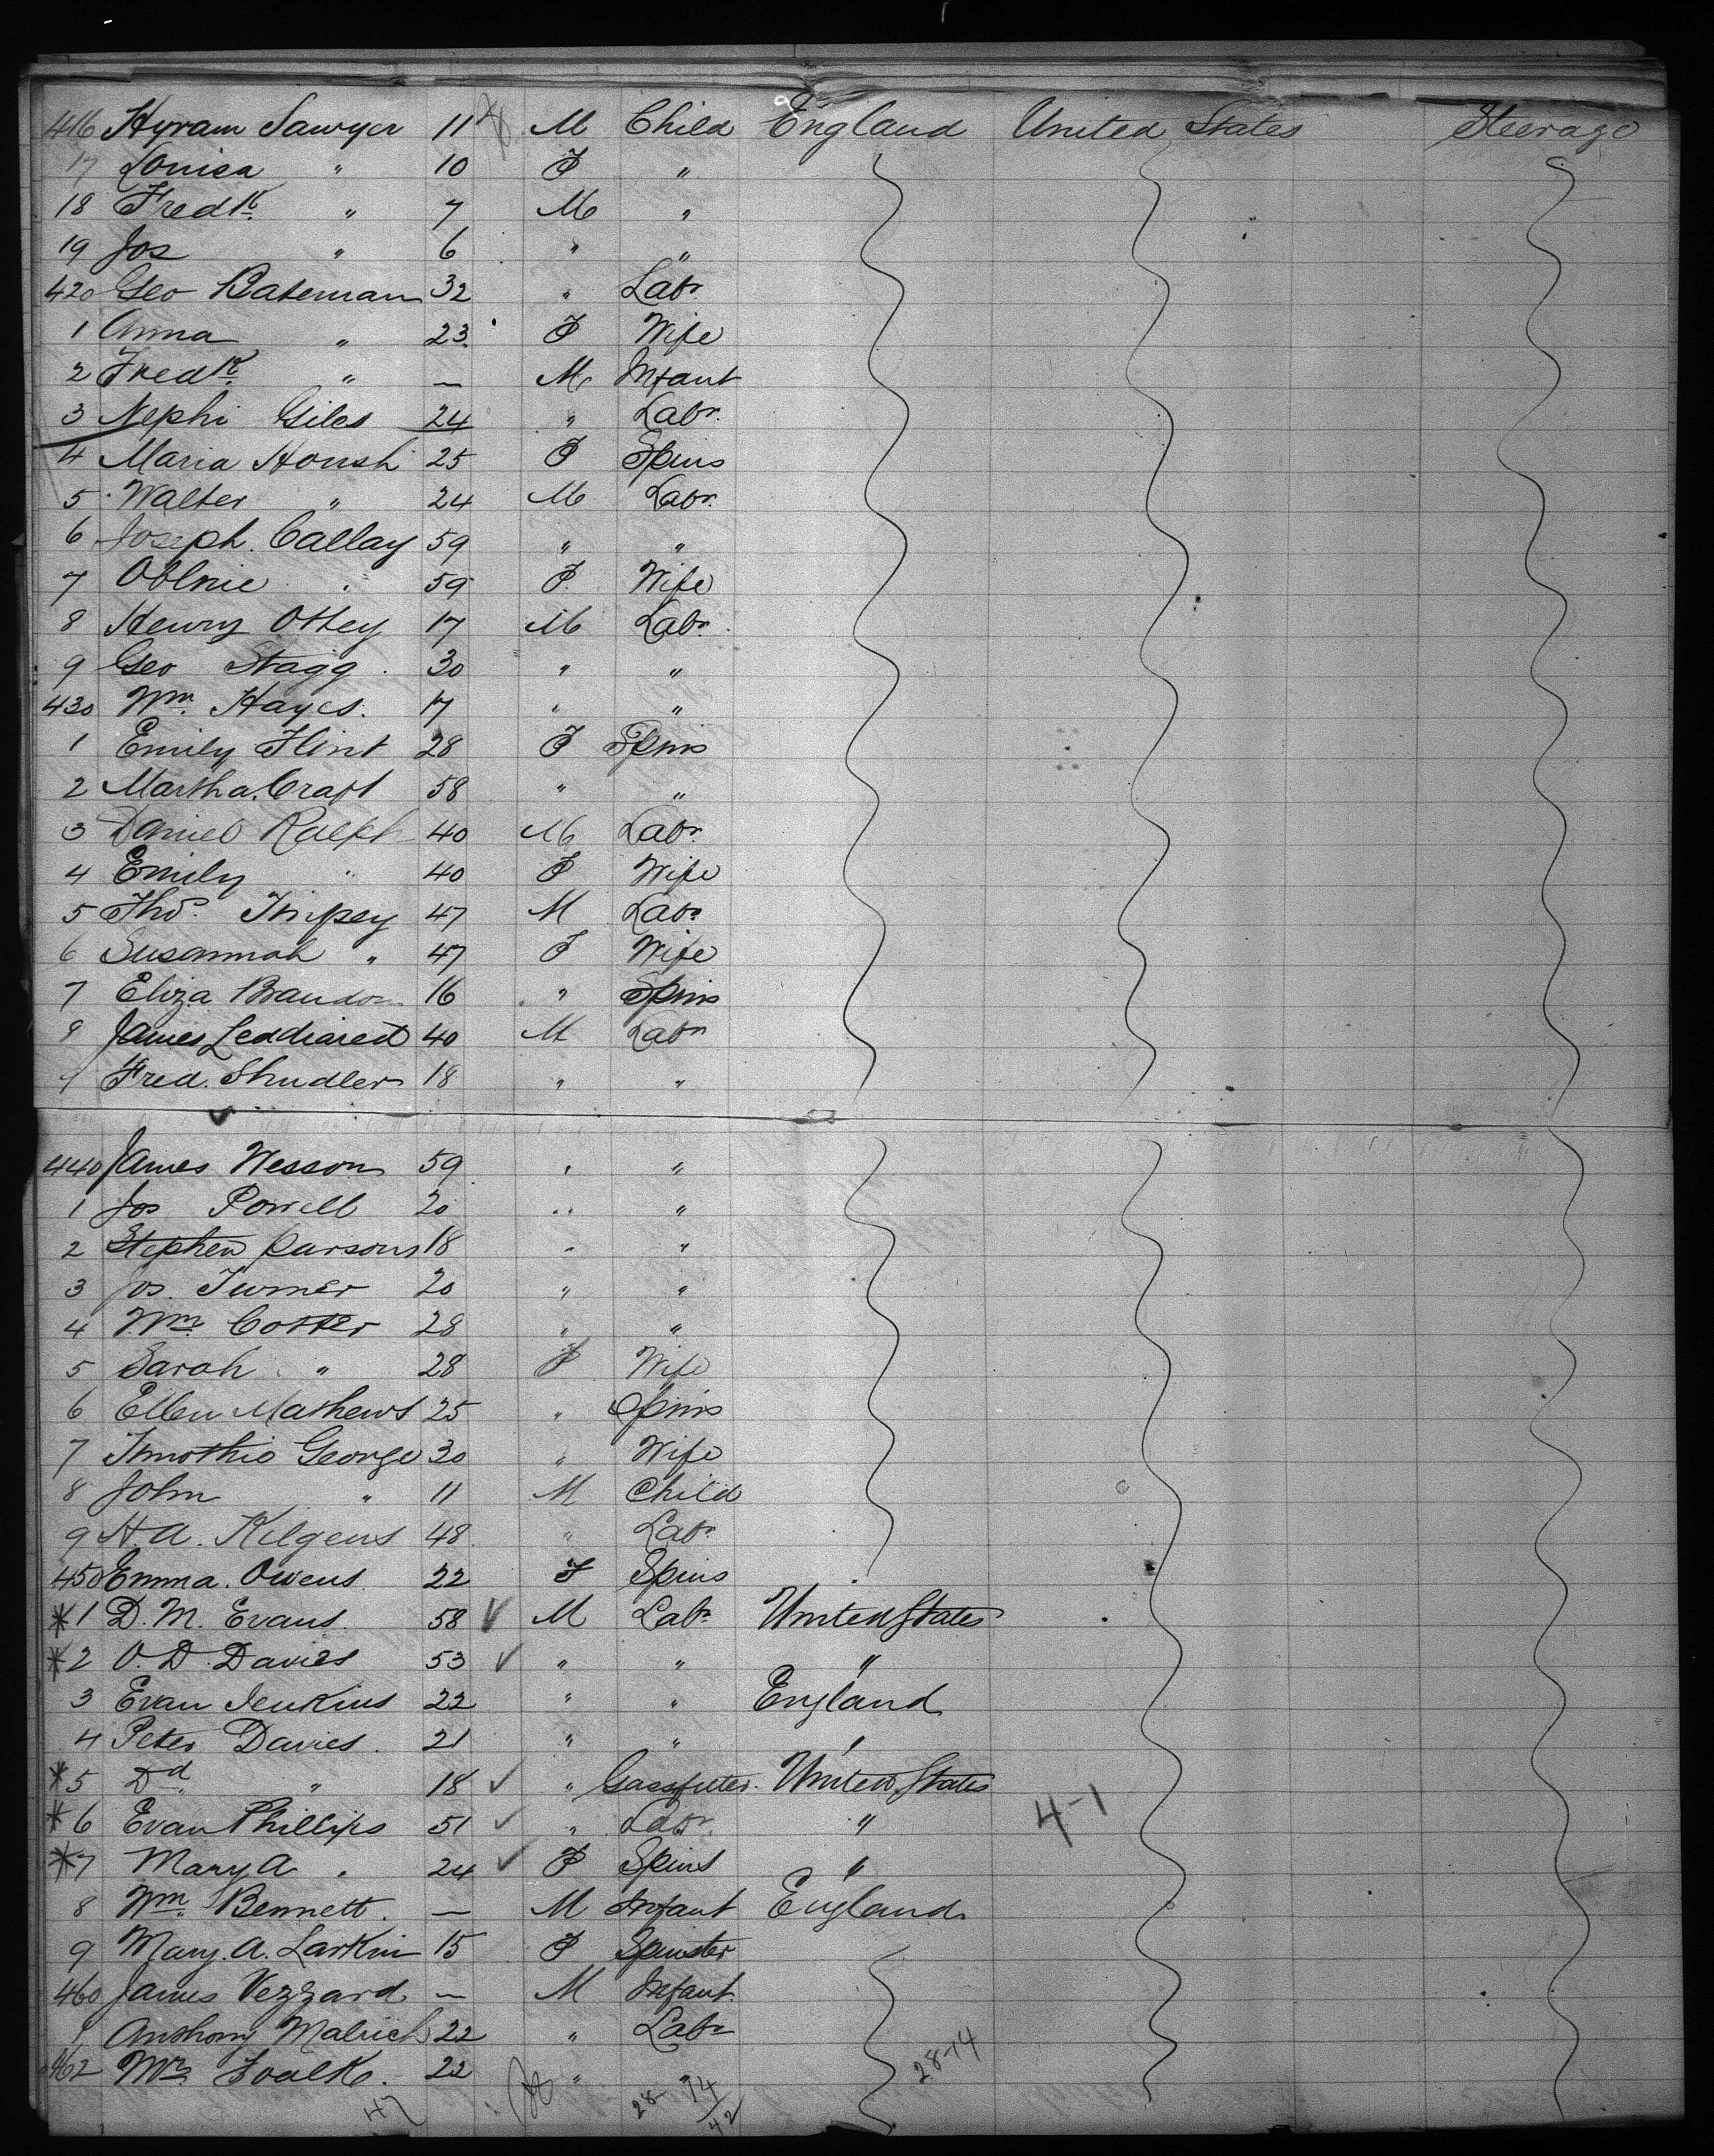 416 Hyram Sawyer 11 M Child England United States Steerage
17 Louisa " 10 F "
18 Fredk " 7 M "
19 Jos " 6 " "
420 Geo Bateman 32 " Labr
1 Anna " 23 F Wife
2 Fredk " — M Infant
3 Nephi Giles 24 " Labr.
4 Maria Honish 25 F Spins
5 Walter " 24 M Labr.
6 Joseph Callay 59 " "
7 " 59 F Wife
8 Henry Ottey 17 M Labr.
9 Geo Stagg 30 " "
430 Wm. Hayes. 17 " "
1 Emily Flint 28 F Spins
2 Martha Craft 58 " "
3 Daniel Ralph 40 M Labr.
4 Emily " 40 F Wife
5 Thos. Impey 47 M Labr
6 Susannah " 47 F Wife
7 Eliza Brandon 16 " Spins
8 James Leddiared 40 M Labr
9 Fred. Shudler 18 " "
440 James Wesson 59 " "
1 Jos Powell 20 " "
2 Stephen Parsons 18 " "
3 Jos. Turner 20 " "
4 Wm. Cotter 28 " "
5 Sarah " 28 F Wife
6 Ellen Mathews 25 " Spins
7 Timothie George 30 " Wife
8 John " 11 M Child
9 H. A. Kilgens 48 " Labr
450 Emma. Owens 22 F Spins
* 1 D. M. Evans. 58 ✓ M Labr United States
* 2 O. D. Davies 53 ✓ " " "
3 Evan Jenkins 22 " " England
4 Peter Davies. 21 " " "
* 5 Dd. " 18 ✓ " Gassfitter. United States
* 6 Evan Phillips 51 ✓ " Labr. " 4-1
* 7 Mary A " 24 ✓ F Spins "
8 Wm. Bennett. — M Infant England
9 Mary. A. Larkin 15 F Spinster
460 James Vezzard — M Infant.
1 Anthony Malrich 22 " Labr
462 Mr. Foalk. 22 " " 28-14
47 28- 14/42